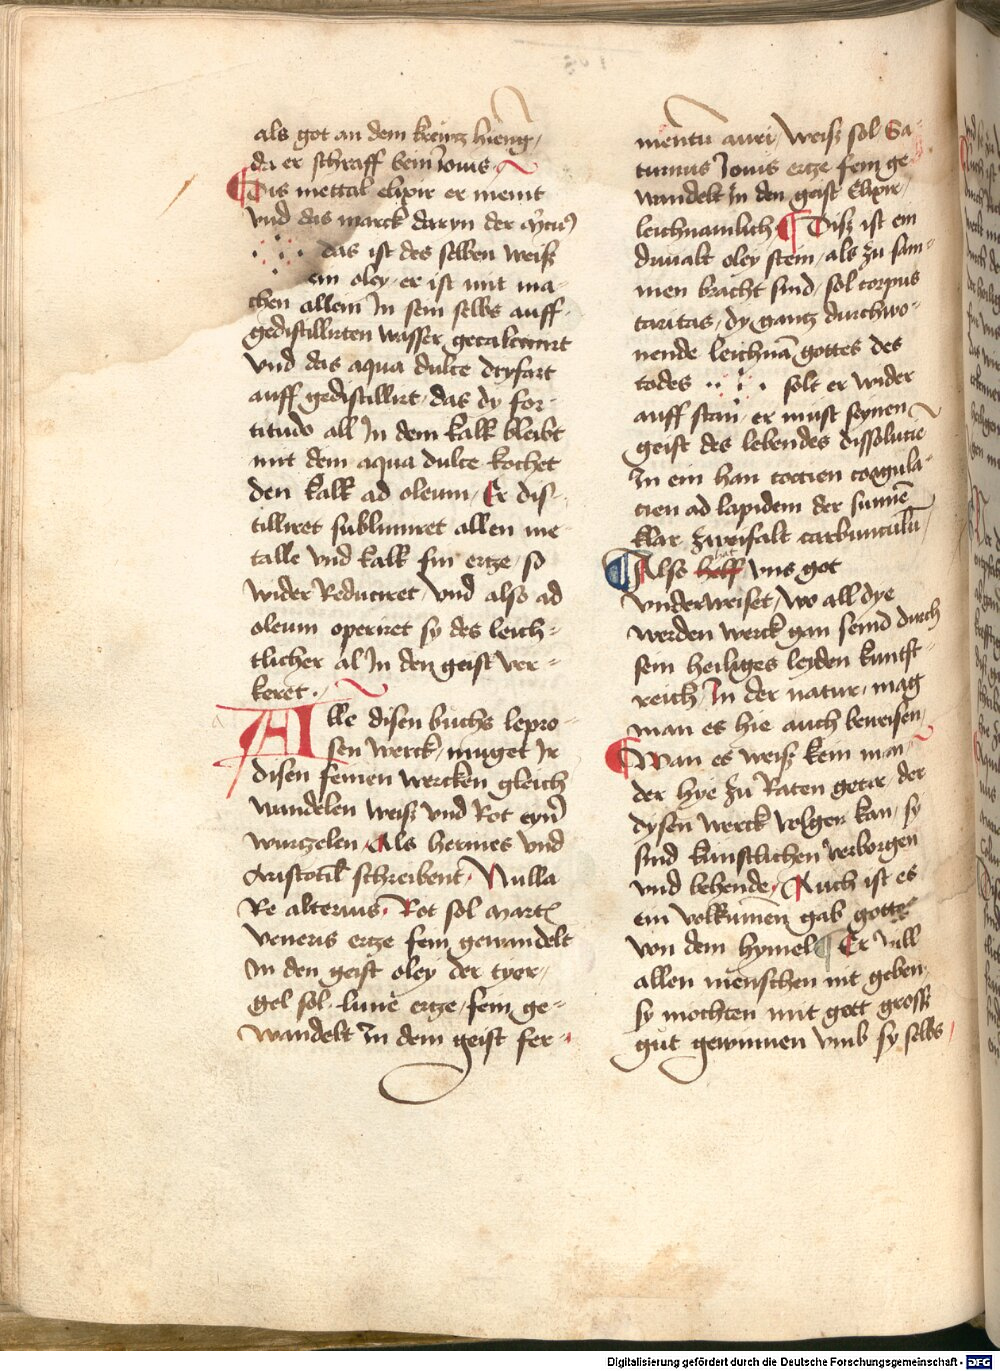 als got an dem kreutz hieng,
da er schraff sein Jouis
Dis mettal elixir er meint
vnd das marck daryn der
das ist des selben weiß
ein oley, er ist mit ma-
chen allein In sein selbs auff-
gedistillirten wasser gecalcinirt
vnd das aqua dulce dryfart
auff gedistillirt, das dy for-
titudo all In dem kalk bleibt
mit dem aqua dulce kochet
den kalk ad oleum, Er dis-
tilliret sublimiret allen me-
talle vnd kalk sin ertze, so
wider Reduciret, vnd also ad
oleum operiret sy des leich-
tlicher al In den geist ver-
keret.
Alle disen buchs lepro-
sen werck, muget Ir
disen seinen wercken gleich
wandelen weiß vnd Rot eyn
wurtzelen, Als hermes vnd
Aristotil schreibent, Nulla
Re alterius. Rot sol Martis
veneris ertze sein gewandelt
In den geist oley der tyer,
gel sol lune ertze, sein ge-
wandelt In dem geist fer-
mentu auri, weiß sol Sa-
turnus Jouis ertze sein ge-
wandelt In den geist Elixir,
leichnamlich Disz ist ein
diualt oley stein, als zu sam-
men bracht sind, sol corpus
caritas, dy gantz durchwo-
nende leichna gottes des
todes solt er wider
auff stan, er must seynen
geist des lebendes dissolucie
In ein han coccien coagula-
cien ad lapidem der sunnen
klar zweifalt carbunculu,
Also hat vns got
vnderweiset, wo all dye
werden werck gan seind durch
sein heiliges leyden kunst-
reich, In der natur, mag
man es hie auch beweisen,
Wan es weiß kein man
der hye zu Raten getar, der
dysen werck volgen kan, sy
sind kunstlichen verborgen
vnd behende, Auch ist es
ein volkumen gab gottes
von dem hymel Er will
allen menschen nit geben,
sy mochten mit gott grossz
gut gewinnen vmb sy selbs
Digitalisierung gefördert durch die Deutsche Forschungsgemeinschaft - DFG